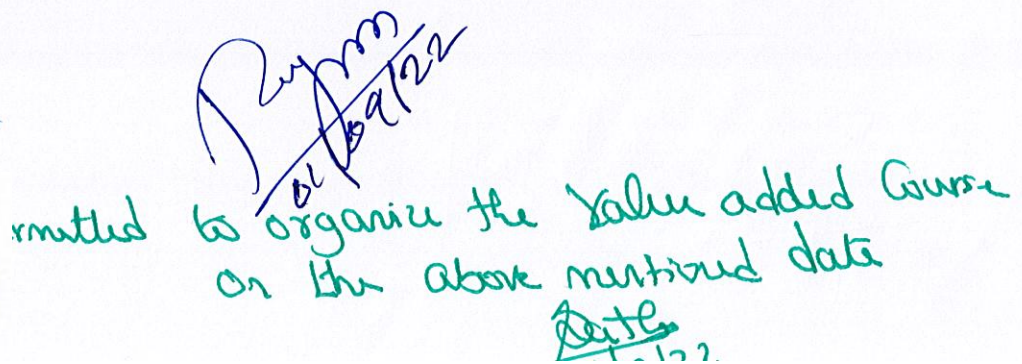 01/09/22
rmitted to organize the Value added Course
on the above mentioned date